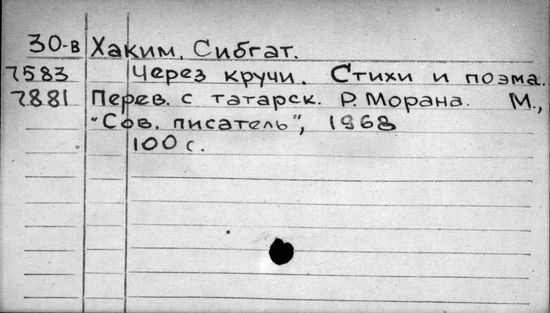 30-в Хаким, Сибгат.
7583 Через кручи. Стихи и поэма.
7881 Перев. с татарск. Р. Морана. М.,
"Сов. писатель", 1968
100 с.